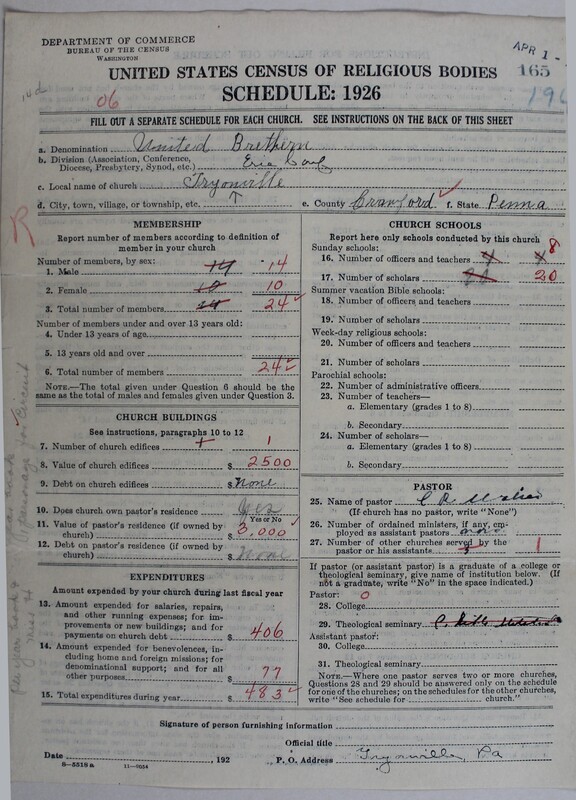 DEPARTMENT OF COMMERCE
BUREAU OF THE CENSUS
WASHINGTON
APR 1 -
165
UNITED STATES CENSUS OF RELIGIOUS BODIES
SCHEDULE: 1926
06
FILL OUT A SEPARATE SCHEDULE FOR EACH CHURCH. SEE INSTRUCTIONS ON THE BACK OF THIS SHEET
a. Denomination United Brethern
b. Division (Association, Conference,
Diocese, Presbytery, Synod, etc.) Erie Conf
c. Local name of church Tryonville
d. City, town, village, or township, etc. ↑ e. County Crawford f. State Penna
R
MEMBERSHIP
Report number of members according to definition of
member in your church
Number of members, by sex:
1. Male 14 14
2. Female 10 10
3. Total number of members 24 24
Number of members under and over 13 years old:
4. Under 13 years of age
5. 13 years old and over
6. Total number of members 24
NOTE.—The total given under Question 6 should be the
same as the total of males and females given under Question 3.
CHURCH BUILDINGS
See instructions, paragraphs 10 to 12
7. Number of church edifices 1
8. Value of church edifices $ 2500
9. Debt on church edifices $ None
10. Does church own pastor's residence Yes
Yes or No
11. Value of pastor's residence (if owned by
church) $ 3,000
12. Debt on pastor's residence (if owned by
church) $ None
EXPENDITURES
Amount expended by your church during last fiscal year
13. Amount expended for salaries, repairs,
and other running expenses; for im-
provements or new buildings; and for
payments on church debt $ 406
14. Amount expended for benevolences, in-
cluding home and foreign missions; for
denominational support; and for all
other purposes $ 77
15. Total expenditures during year $ 483
CHURCH SCHOOLS
Report here only schools conducted by this church
Sunday schools:
16. Number of officers and teachers 8
17. Number of scholars 20
Summer vacation Bible schools:
18. Number of officers and teachers
19. Number of scholars
Week-day religious schools:
20. Number of officers and teachers
21. Number of scholars
Parochial schools:
22. Number of administrative officers
23. Number of teachers—
a. Elementary (grades 1 to 8)
b. Secondary
24. Number of scholars—
a. Elementary (grades 1 to 8)
b. Secondary
PASTOR
25. Name of pastor
(If church has no pastor, write "None")
26. Number of ordained ministers, if any, em-
ployed as assistant pastors
27. Number of other churches served by the
pastor or his assistants 1
If pastor (or assistant pastor) is a graduate of a college or
theological seminary, give name of institution below. (If
not a graduate, write "No" in the space indicated.)
Pastor: 0
28. College
29. Theological seminary
Assistant pastor:
30. College
31. Theological seminary
NOTE.—Where one pastor serves two or more churches,
Questions 28 and 29 should be answered only on the schedule
for one of the churches; on the schedules for the other churches,
write "See schedule for church."
Signature of person furnishing information
Official title
Date , 192 P. O. Address Tryonville, Pa
8—5518a 11—9654